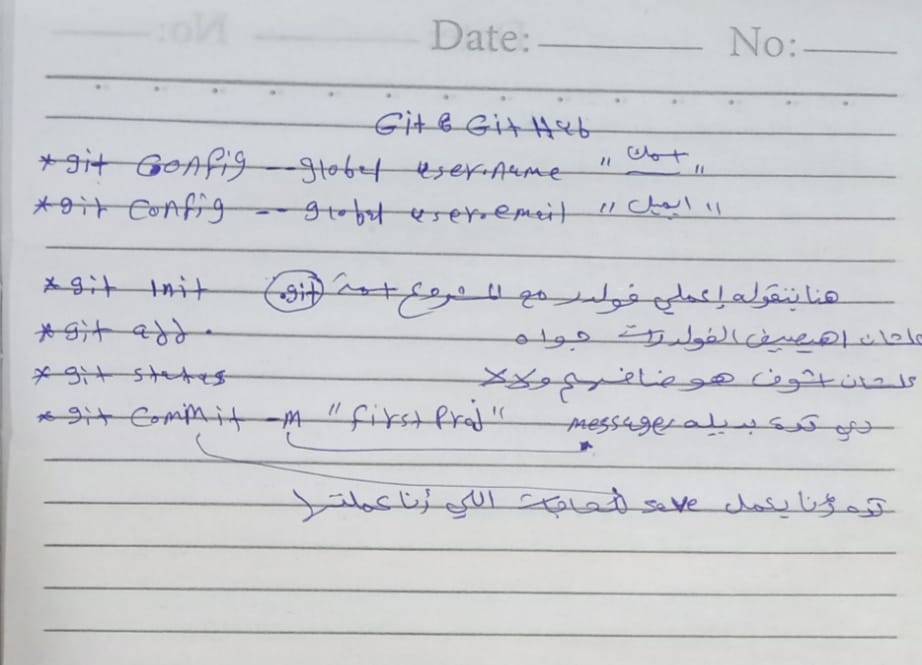 Date: No:
Git & Git Hub
* git config --global user.name "اسمك"
* git config --global user.email "ايميل"
* git init .git هنا بنقوله إعملي فولدر مع المشروع اسمه
* git add . علشان اضيف الفولدرات جواه
* git status علشان اشوف هو ضافهم ولا لا
* git commit -m "first Proj" دي كده بديله message
كده أنا بعمل save للحاجات اللي أنا عملتها